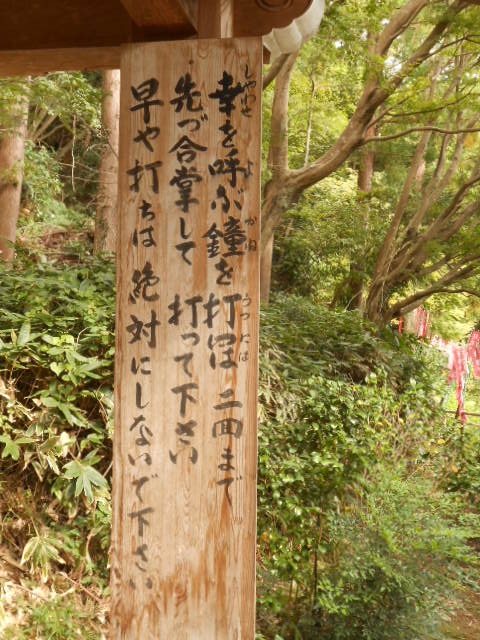 幸を呼ぶ鐘を打つには二回まで
先づ合掌して打って下さい
早や打ちは絶対にしないで下さい